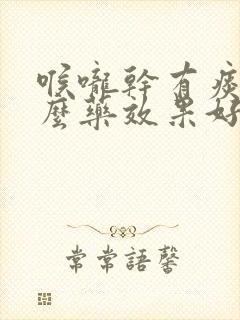 喉嚨幹有痰
麼藥效果好
常常語馨